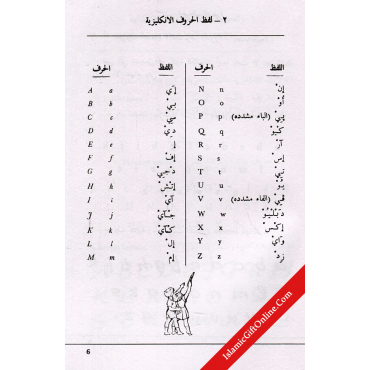 ٢ – لفظ الحروف الانكليزية
الحرف اللفظ الحرف اللفظ
A a إي N n إنْ
B b بي O o أوْ
C c سي P p پيْ (الباء مشدده)
D d دي Q q كيُوْ
E e إ R r آرْ
F f إفْ S s إسْ
G g دجيْ T t تيْ
H h إتْشْ U u يُوْ
I i آيْ V v ڤيْ (الفاء مشدده)
J j جَآيْ W w دَبْلْيُوْ
K k كَآيْ X x إكْسْ
L l إلْ Y y وَايْ
M m إمْ Z z زِدْ
6
IslamicGiftOnline.Com